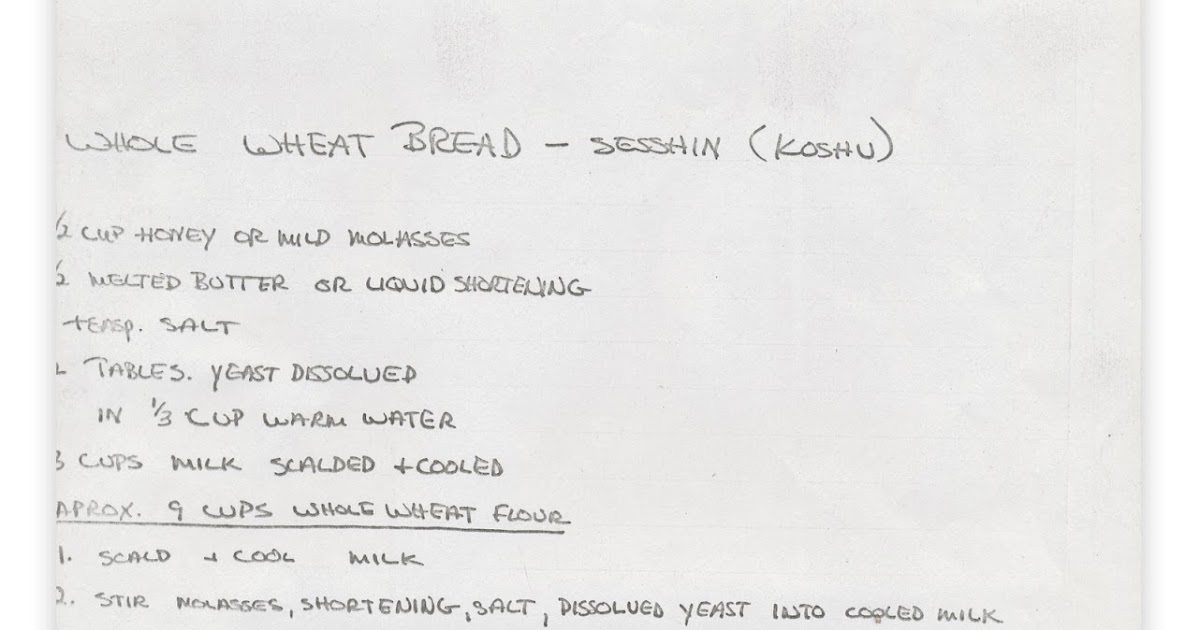 WHOLE WHEAT BREAD - SESSHIN (KOSHU)
1/2 CUP HONEY OR MILD MOLASSES
1/2 MELTED BUTTER OR LIQUID SHORTENING
TEASP. SALT
TABLES. YEAST DISSOLVED
IN 1/3 CUP WARM WATER
3 CUPS MILK SCALDED + COOLED
APROX. 9 CUPS WHOLE WHEAT FLOUR
1. SCALD + COOL MILK
2. STIR MOLASSES, SHORTENING, SALT, DISSOLVED YEAST INTO COOLED MILK